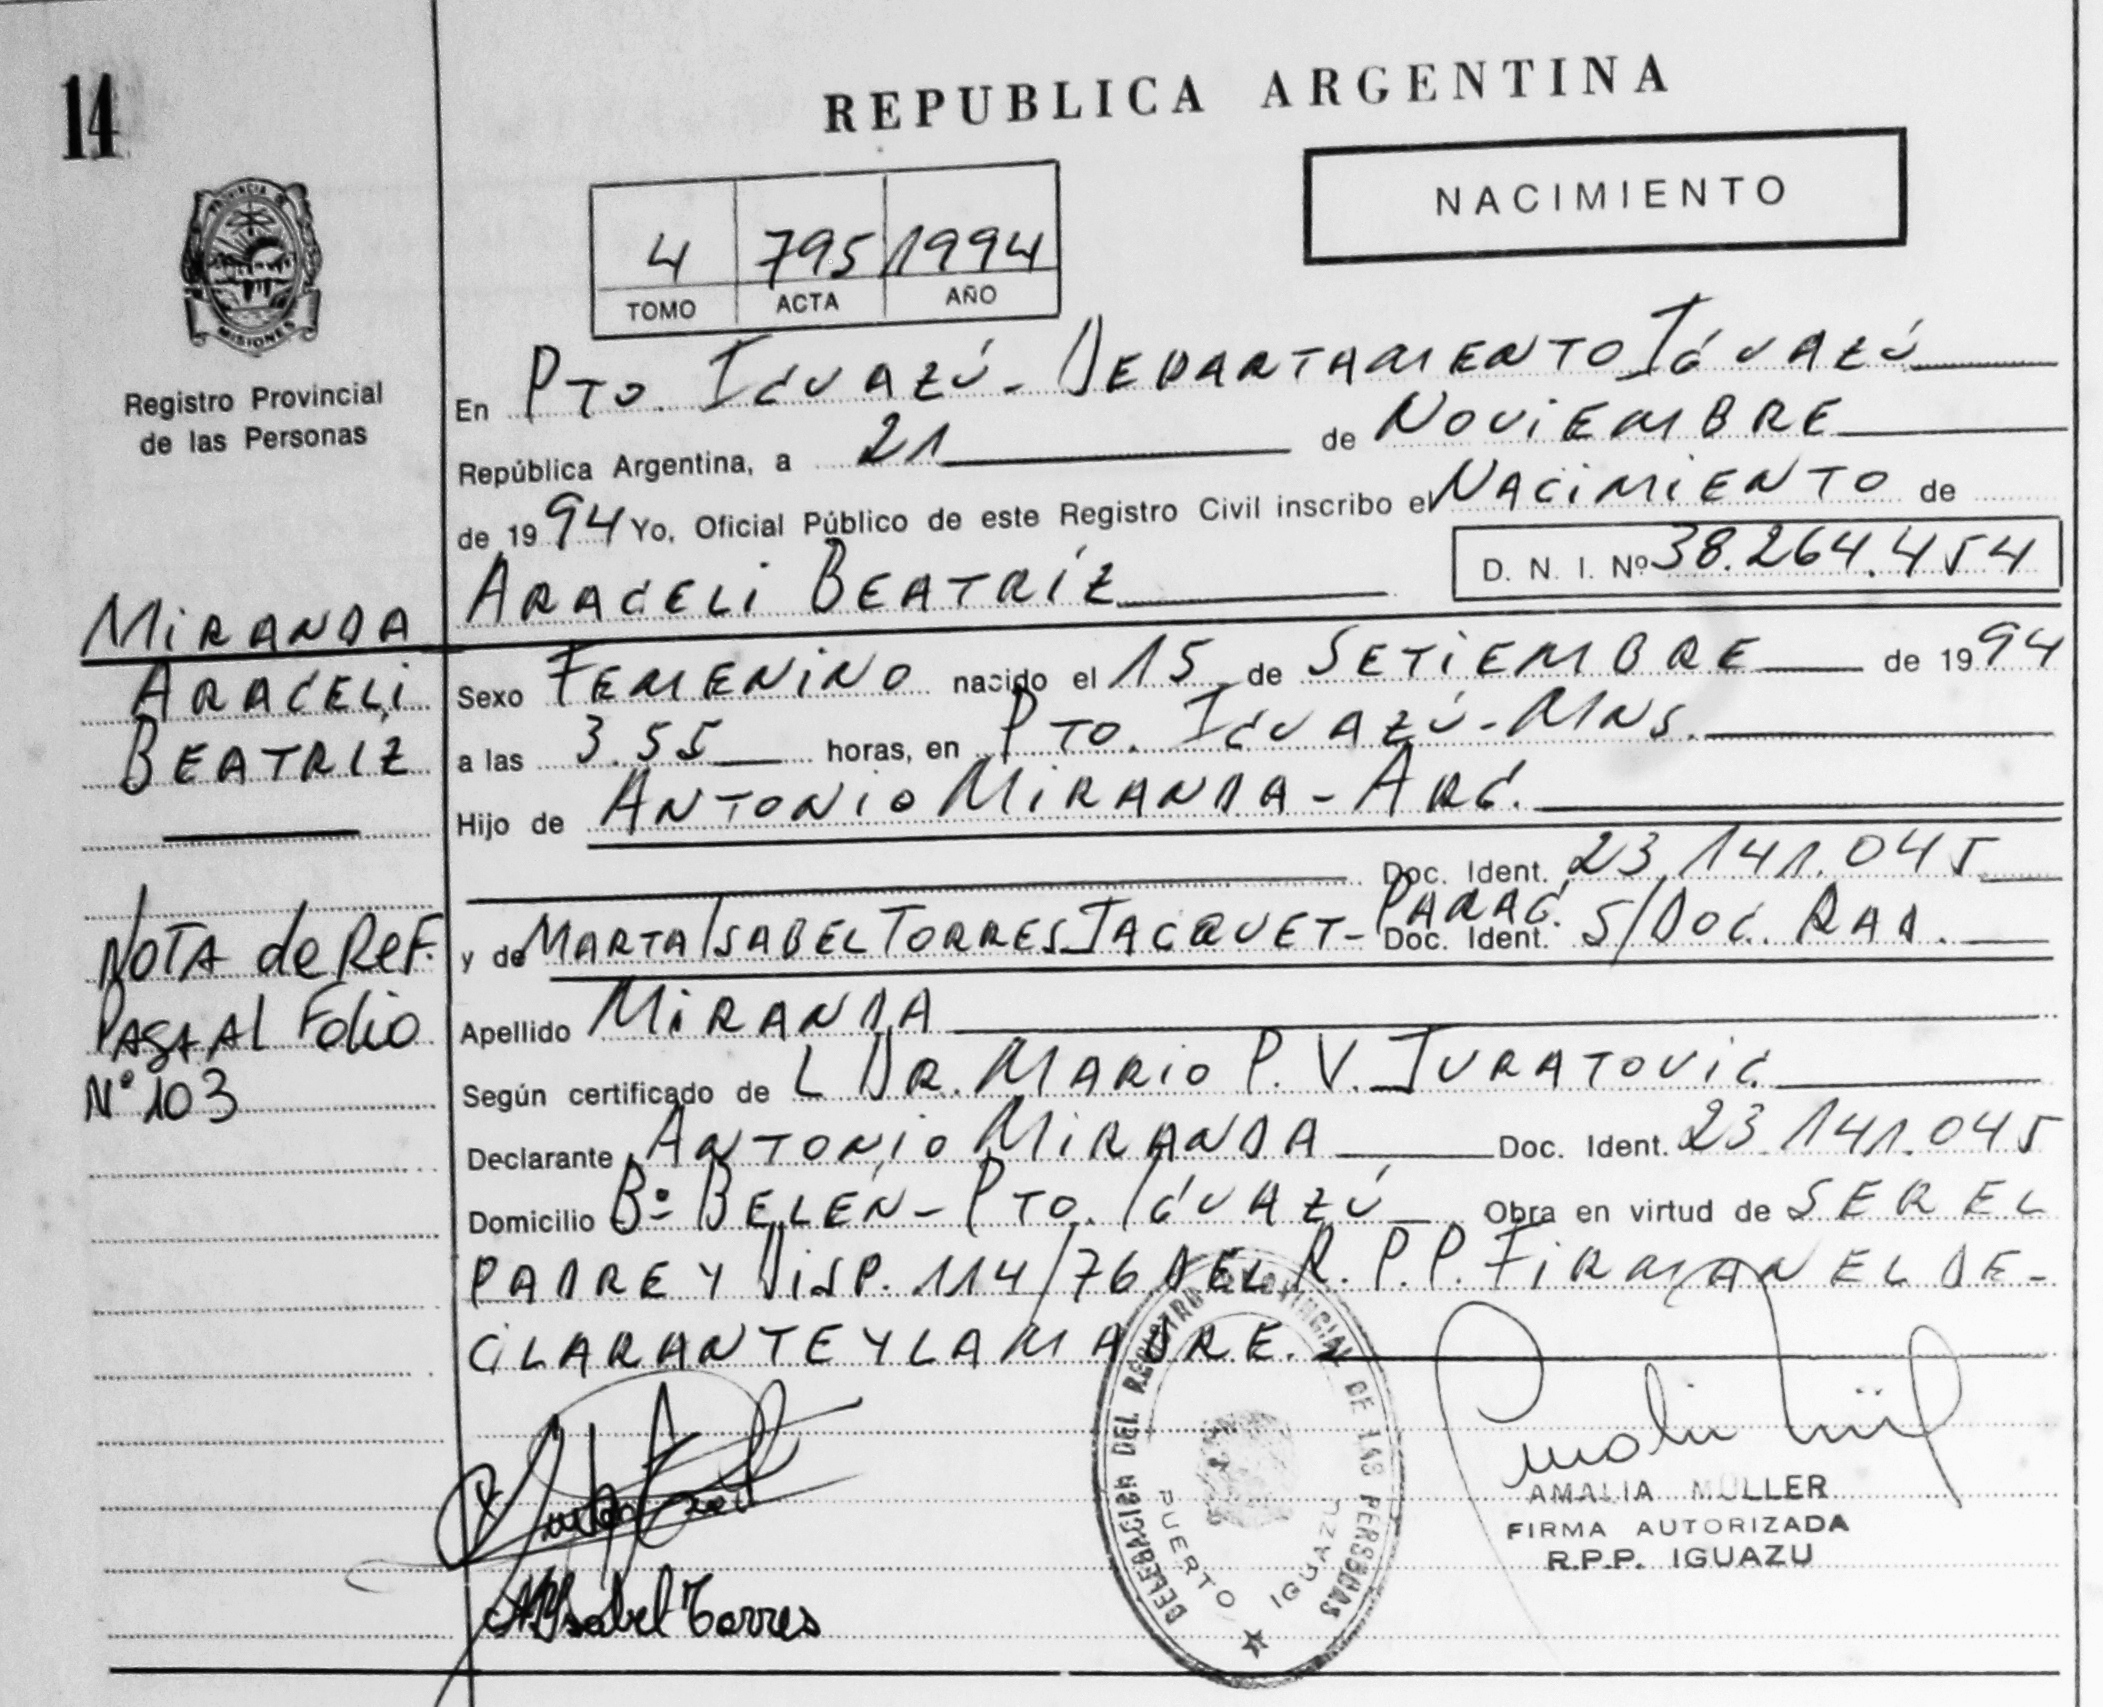 14
REPUBLICA ARGENTINA
NACIMIENTO
4 795 1994
TOMO ACTA AÑO
PROVINCIA DE
MISIONES
Registro Provincial
de las Personas
En Pto. Iguazú - Departamento Iguazú
República Argentina, a 21 de Noviembre
de 1994 Yo, Oficial Público de este Registro Civil inscribo el Nacimiento de
Araceli Beatríz D. N. I. Nº 38.264.454
Sexo Femenino nacido el 15 de Setiembre de 1994
a las 3.55 horas, en Pto. Iguazú - Mns.
Hijo de Antonio Miranda - Arg.
Doc. Ident. 23.141.045
y de Marta Isabel Torres Jacquet - Parag. Doc. Ident. S/Doc. Rad.
Apellido Miranda
Según certificado de L Dr. Mario P. V. Juratovic
Declarante Antonio Miranda Doc. Ident. 23.141.045
Domicilio Bº Belén - Pto. Iguazú Obra en virtud de ser el
padre y Disp. 114/76 del R. P. P. Firman el de-
clarante y la madre.
Miranda
Araceli
Beatriz
Nota de Ref.
Pasa al Folio
Nº 103
M Isabel Torres
DELEGACION DEL REGISTRO PROVINCIAL DE LAS PERSONAS
PUERTO IGUAZU
AMALIA MULLER
FIRMA AUTORIZADA
R.P.P. IGUAZU